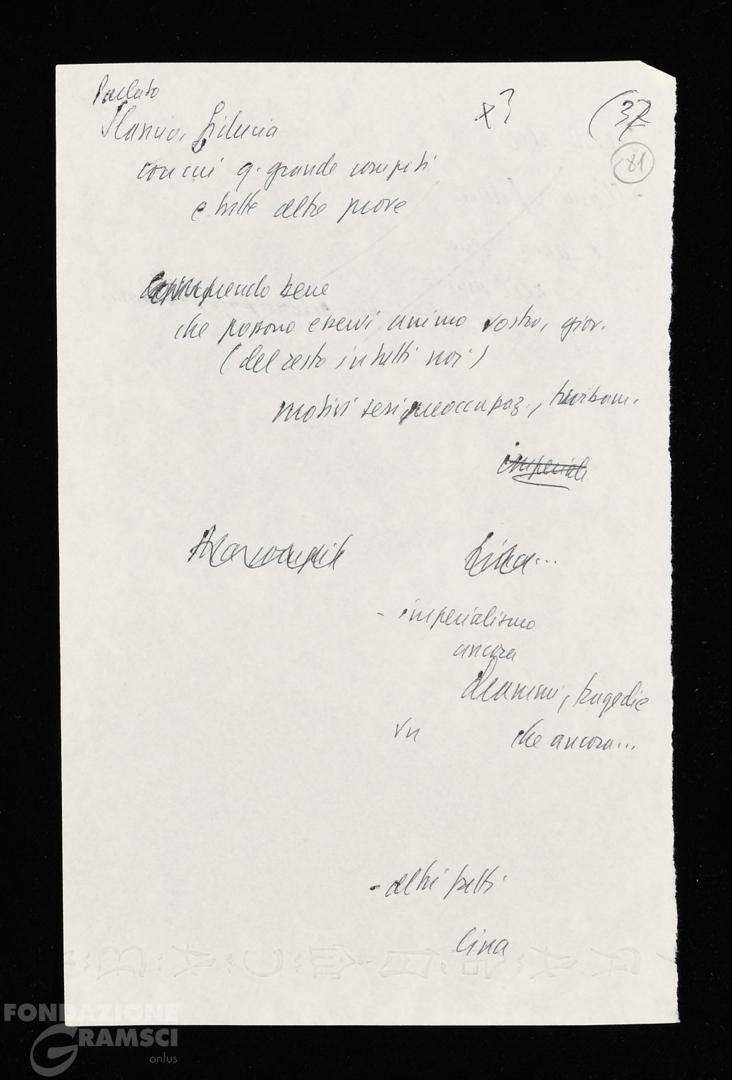 Parlato
Slancio, fiducia x3 (37
con cui q. grande compiti 81
e tutte altre prove
Comprendo bene
che possono esservi animo vostro, giov.
(del resto in tutti noi)
motivi seri preoccupaz., turbam.
imperiali
Cina...
- imperialismo
ancora
drammi, tragedie
Vn che ancora...
- altri fatti
Cina
FONDAZIONE
GRAMSCI
onlus